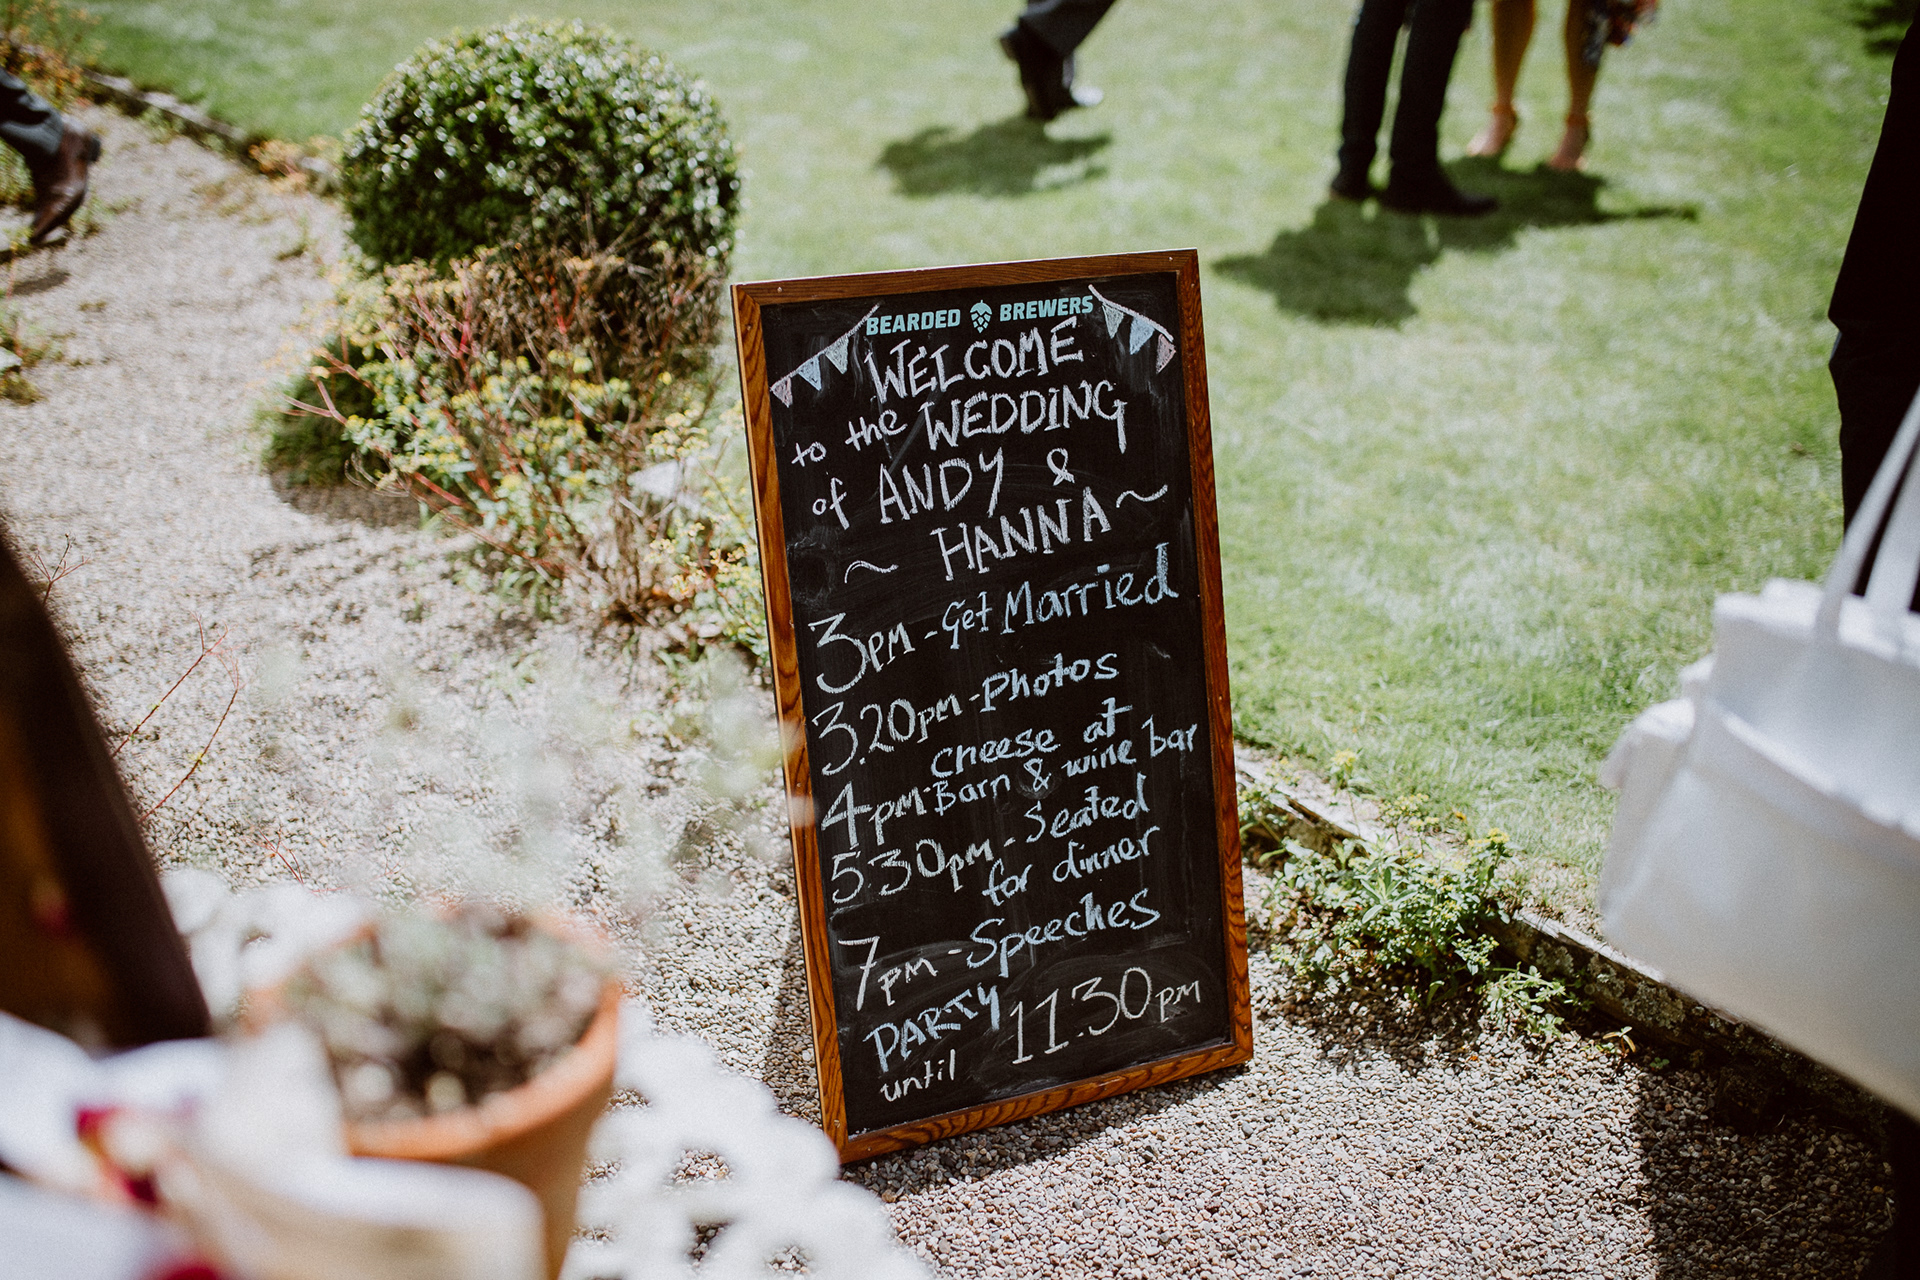 BEARDED BREWERS
WELCOME
to the WEDDING
of ANDY &
~ HANNA ~
3PM - Get Married
3.20pm - Photos
cheese at
4pm - Barn & wine bar
5:30pm - Seated
for dinner
7pm - Speeches
PARTY 11.30pm
until